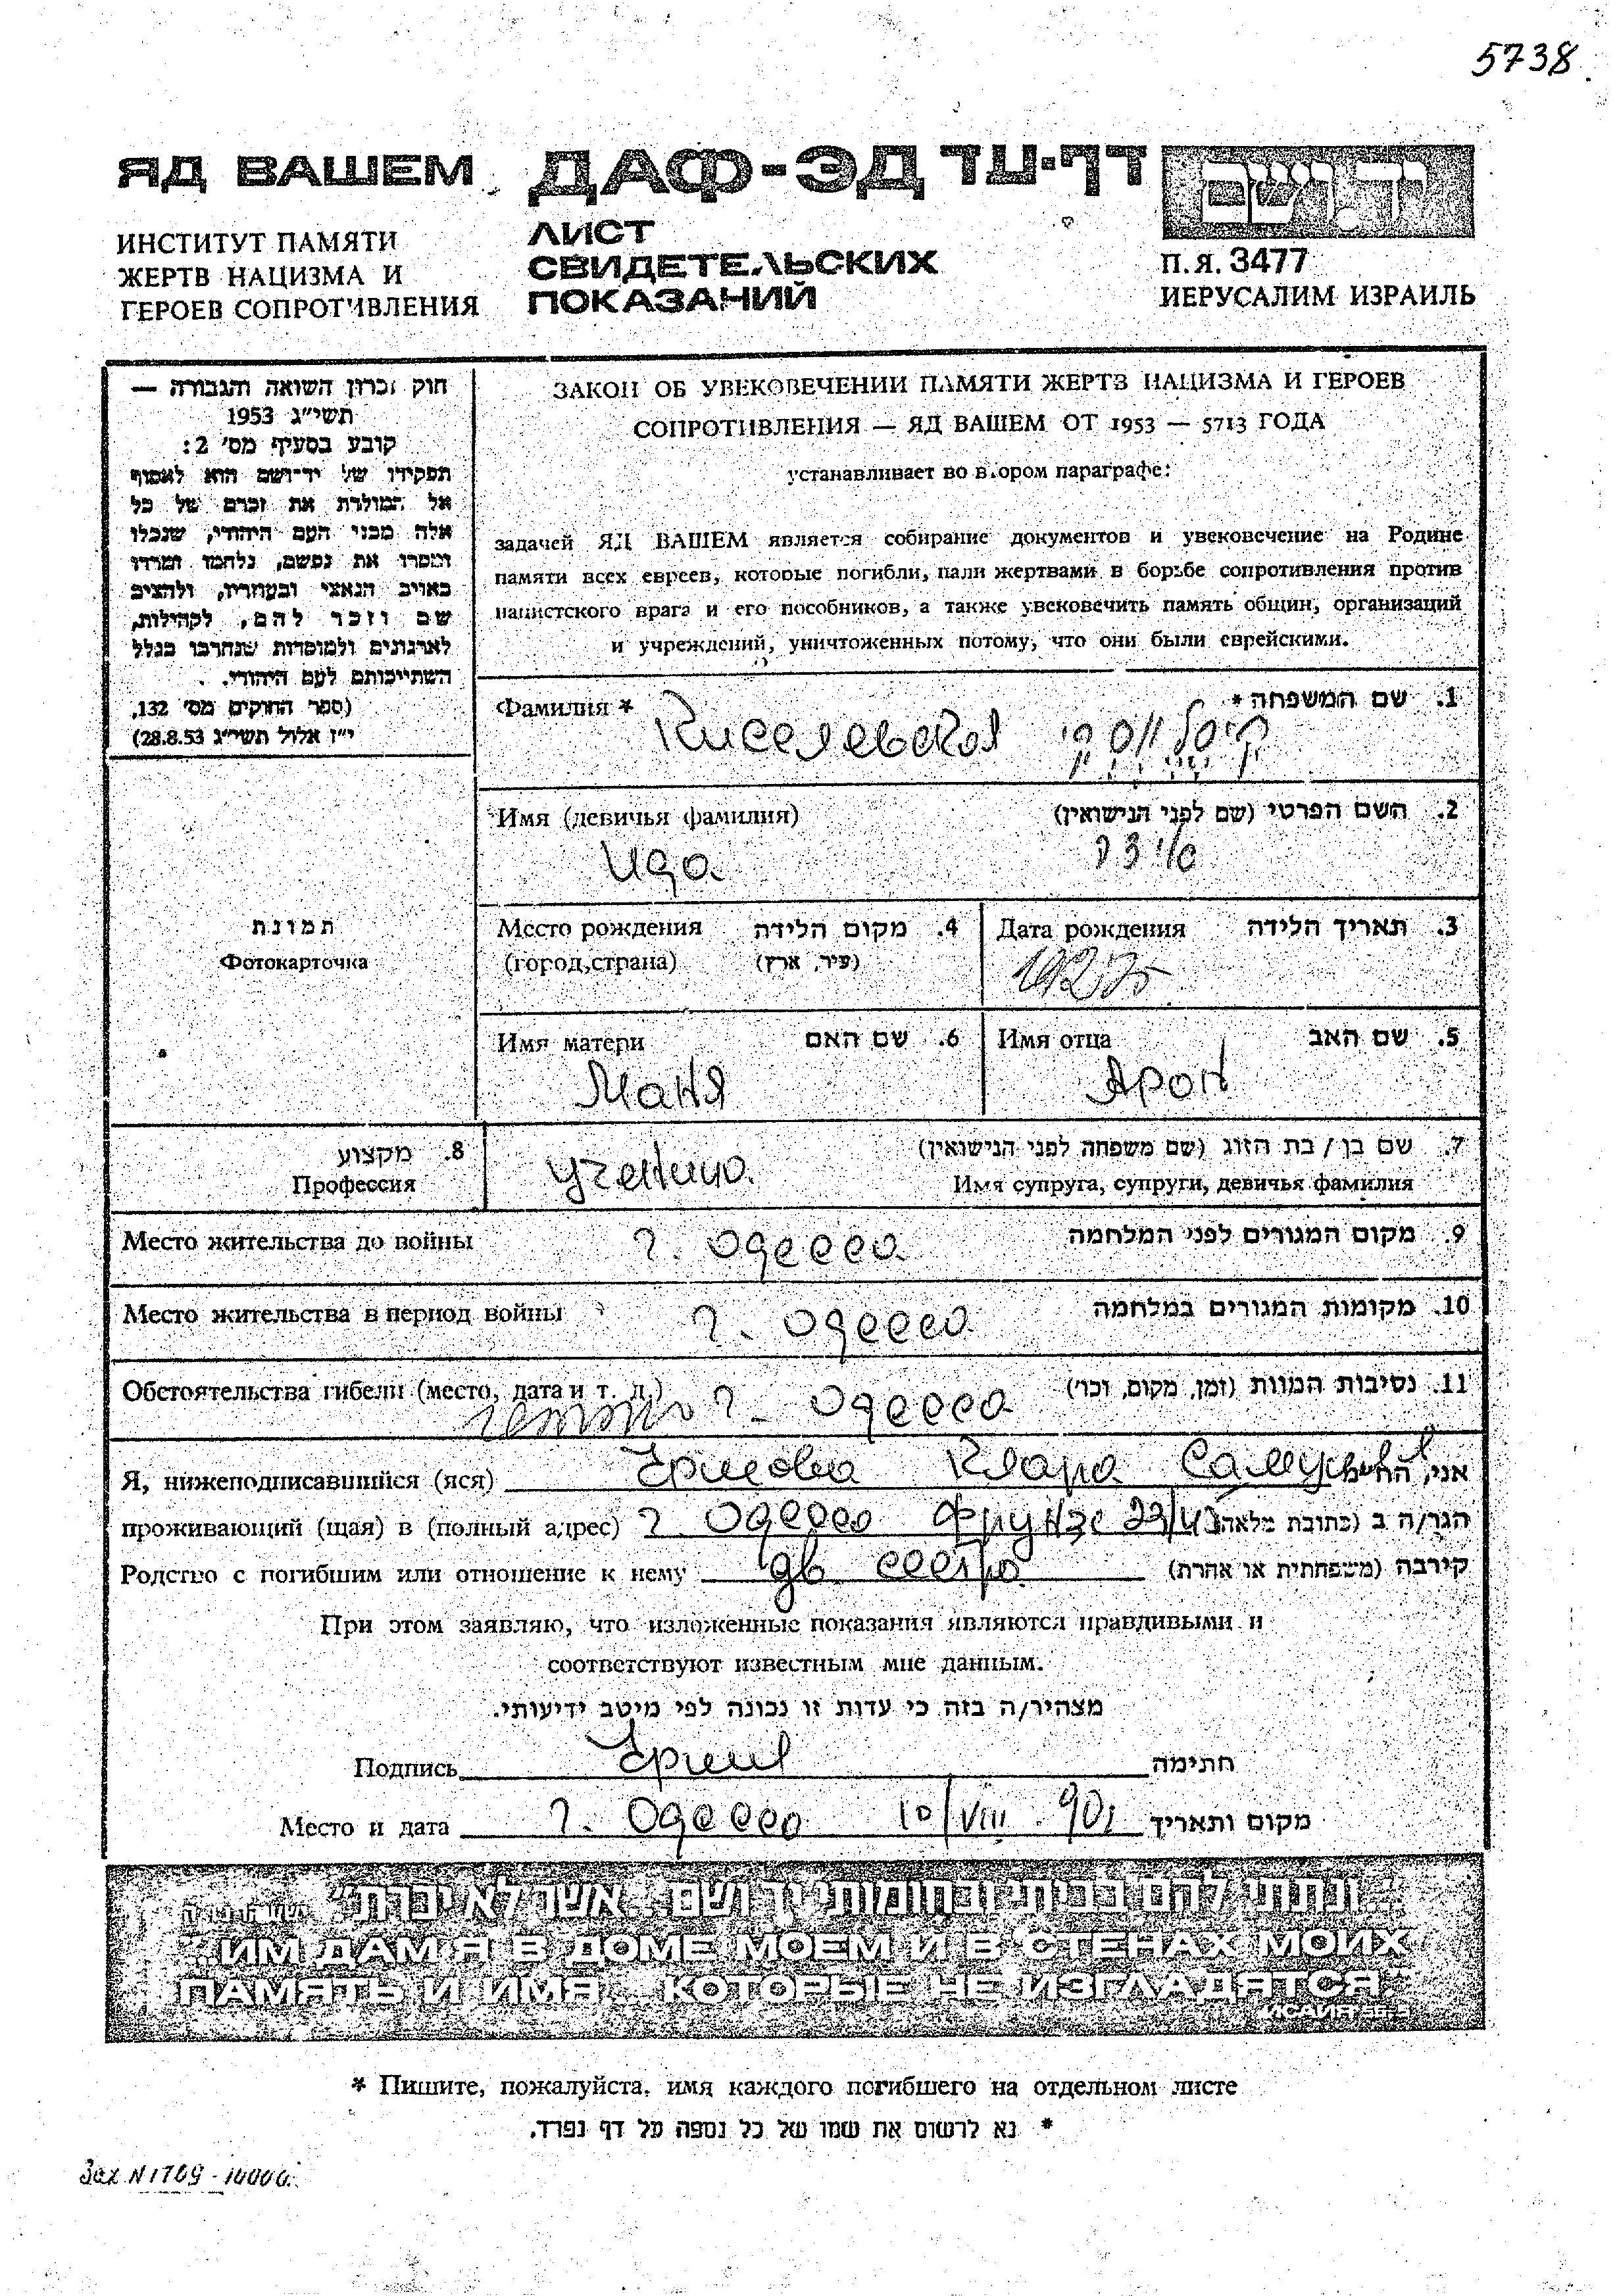 5738
ЯД ВАШЕМ
ИНСТИТУТ ПАМЯТИ
ЖЕРТВ НАЦИЗМА И
ГЕРОЕВ СОПРОТИВЛЕНИЯ
ДАФ-ЭД דף-עד
ЛИСТ
СВИДЕТЕЛЬСКИХ
ПОКАЗАНИЙ
יד ושם
П.Я. 3477
ИЕРУСАЛИМ ИЗРАИЛЬ
חוק זכרון השואה והגבורה —
תשי״ג 1953
קובע בסעיף מס׳ 2:
תפקידו של יד־ושם הוא לאסוף
אל המולדת את זכרם של כל
אלה מבני העם היהודי, שנפלו
ומסרו את נפשם, נלחמו ומרדו
באויב הנאצי ובעוזריו, ולהציב
שם וזכר להם, לקהילות,
לארגונים ולמוסדות שנחרבו בגלל
השתייכותם לעם היהודי.
(ספר החוקים מס׳ 132,
י״ז אלול תשי״ג 28.8.53)
ЗАКОН ОБ УВЕКОВЕЧЕНИИ ПАМЯТИ ЖЕРТВ НАЦИЗМА И ГЕРОЕВ
СОПРОТИВЛЕНИЯ — ЯД ВАШЕМ ОТ 1953 — 5713 ГОДА
устанавливает во втором параграфе:
задачей ЯД ВАШЕМ является собирание документов и увековечение на Родине
памяти всех евреев, которые погибли, пали жертвами в борьбе сопротивления против
нацистского врага и его пособников, а также увековечить память общин, организаций
и учреждений, уничтоженных потому, что они были еврейскими.
Фамилия * Киселевская 1. שם המשפחה *
Имя (девичья фамилия) 2. השם הפרטי (שם לפני הנישואין)
Ида
Место рождения 4. מקום הלידה
(город,страна) (עיר, ארץ)
Дата рождения 3. תאריך הלידה
תמונת
Фотокарточка
Имя матери 6. שם האם
Маня
Имя отца 5. שם האב
Арон
8. מקצוע
Профессия
ученица
7. שם בן / בת הזוג (שם משפחה לפני הנישואין)
Имя супруга, супруги, девичья фамилия
Место жительства до войны г. Одесса 9. מקום המגורים לפני המלחמה
Место жительства в период войны г. Одесса 10. מקומות המגורים במלחמה
Обстоятельства гибели (место, дата и т. д.) гетто г. Одесса 11. נסיבות המוות (זמן, מקום, וכו׳)
Я, нижеподписавшийся (яся) Клара אני, החי״מ
проживающий (щая) в (полный адрес) г. Одесса Фрунзе הגר/ה ב (כתובת מלאה)
Родство с погибшим или отношение к нему дв. сестра קירבה (משפחתית או אחרת)
При этом заявляю, что изложенные показания являются правдивыми и
соответствуют известным мне данным.
מצהיר/ה בזה כי עדות זו נכונה לפי מיטב ידיעותי.
Подпись חתימה
Место и дата г. Одесса 10/VIII 90г מקום ותאריך
״...ונתתי להם בביתי ובחומותי יד ושם... אשר לא יכרת״
„...ИМ ДАМ Я В ДОМЕ МОЕМ И В СТЕНАХ МОИХ
ПАМЯТЬ И ИМЯ... КОТОРЫЕ НЕ ИЗГЛАДЯТСЯ"
ИСАИЯ 56:5
* Пишите, пожалуйста, имя каждого погибшего на отдельном листе
* נא לרשום את שמו של כל נספה על דף נפרד.
Зак N 1709 - 10000